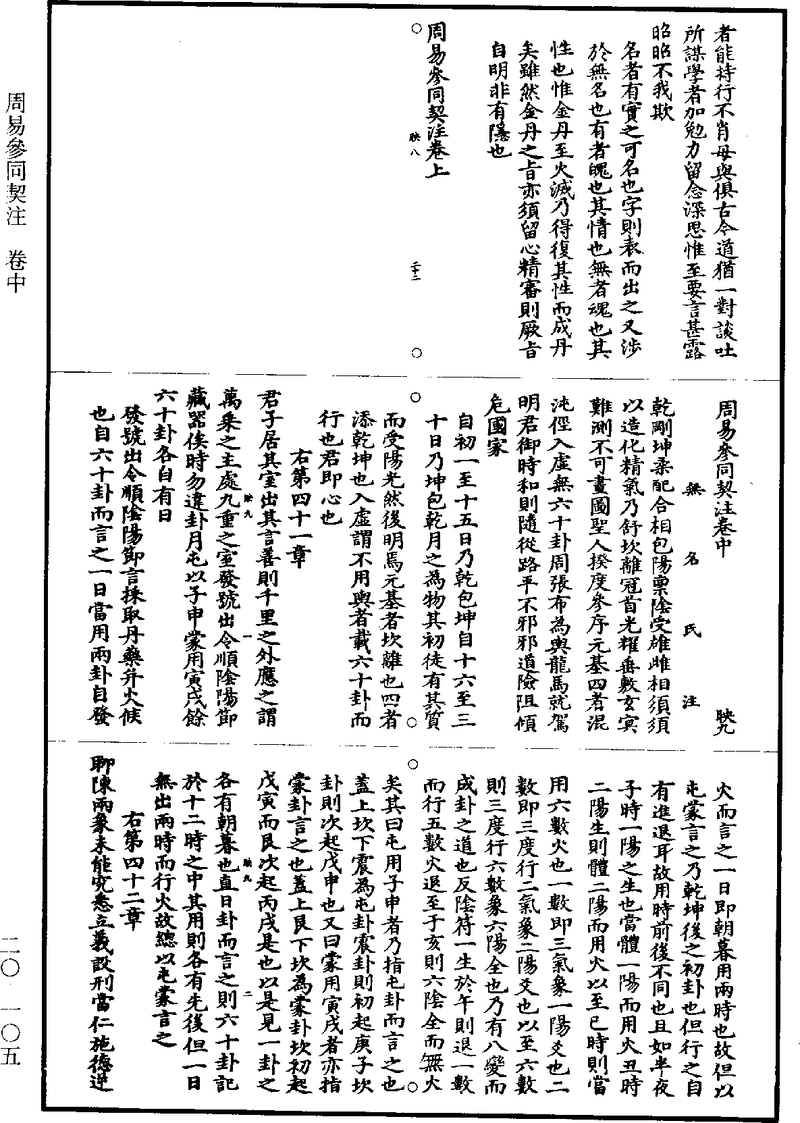 周易參同契注　卷中
者能持行不肖毋與俱古今道猶一對談吐
所謀學者加勉力留念深思惟至要言甚露
昭昭不我欺
名者有實之可名也字則表而出之又涉
於無名也有者魄也其情也無者魂也其
性也惟金丹至火滅乃得復其性而成丹
矣雖然金丹之旨亦須留心精審則厥旨
自明非有隱也
周易參同契注卷上
映八
二十二
周易參同契注卷中
映九
無名氏注
乾剛坤柔配合相包陽稟陰受雄雌相須須
以造化精氣乃舒坎離冠首光耀垂敷玄冥
難測不可畫圖聖人揆度參序元基四者混
沌徑入虛無六十卦周張布為輿龍馬就駕
明君御時和則隨從路平不邪邪道險阻傾
危國家
自初一至十五日乃乾包坤自十六至三
十日乃坤包乾月之為物其初徒有其質
而受陽光然後明焉元基者坎離也四者
添乾坤也入虛謂不用輿者載六十卦而
行也君即心也
右第四十一章
君子居其室出其言善則千里之外應之謂
萬乘之主處九重之室發號出令順陰陽節
映九
一
藏器俟時勿違卦月屯以子申蒙用寅戌餘
六十卦各自有日
發號出令順陰陽節言採取丹藥并火候
也自六十卦而言之一日當用兩卦自發
火而言之一日即朝暮用兩時也故但以
屯蒙言之乃乾坤後之初卦也但行之自
有進退耳故用時前後不同也且如半夜
子時一陽之生也當體一陽而用火丑時
二陽生則體二陽而用火以至巳時則當
用六數火也一數即三氣象一陽爻也二
數即三度行二氣象二陽爻也以至六數
則三度行六數象六陽全也乃有八變而
成卦之道也反陰符一生於午則退一數
而行五數火退至于亥則六陰全而無火
矣其曰屯用子申者乃指屯卦而言之也
蓋上坎下震為屯卦震卦則初起庚子坎
卦則次起戊申也又曰蒙用寅戌者亦指
蒙卦言之也蓋上艮下坎為蒙卦坎初起
戊寅而艮次起丙戌是也以是見一卦之
各有朝暮也直日卦而言之則六十卦記
映九
二
於十二時之中其用則各有先後但一日
無出兩時而行火故總以屯蒙言之
右第四十二章
聊陳兩象未能究悉立義設刑當仁施德逆
二〇·一〇五